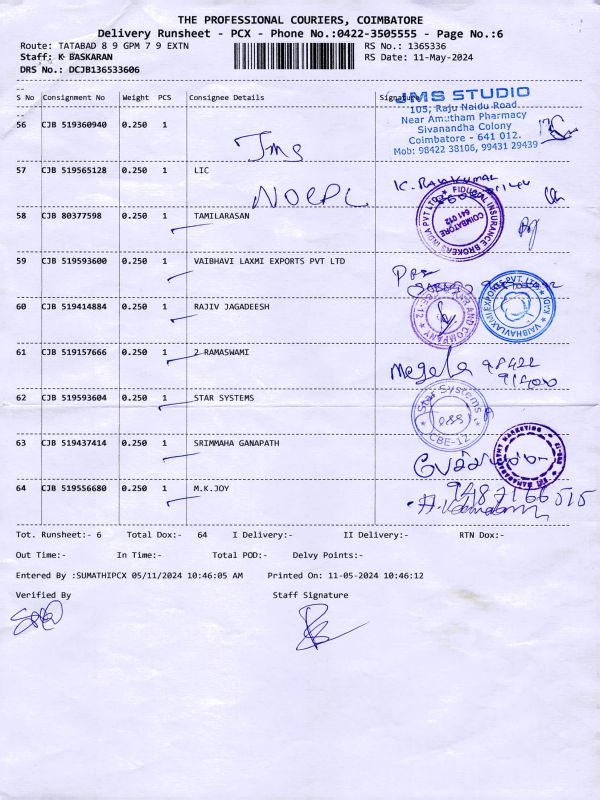 THE PROFESSIONAL COURIERS, COIMBATORE
Delivery Runsheet - PCX - Phone No.:0422-3505555 - Page No.:6
Route: TATABAD 8 9 GPM 7 9 EXTN RS No.: 1365336
Staff: K BASKARAN RS Date: 11-May-2024
DRS No.: DCJB136533606
S No Consignment No Weight PCS Consignee Details Signature
JMS STUDIO
105, Raju Naidu Road
Near Amutham Pharmacy
Sivanandha Colony
Coimbatore - 641 012.
Mob: 98422 38106, 99431 29439
56 CJB 519360940 0.250 1
Jms
57 CJB 519565128 0.250 1 LIC
58 CJB 80377598 0.250 1 TAMILARASAN
FIDUCIAL INSURANCE BROKERS INDIA PVT LTD
COIMBATORE
641 012
59 CJB 519593600 0.250 1 VAIBHAVI LAXMI EXPORTS PVT LTD
VAIBHAVLAXMI EXPORTS PVT. LTD.
60 CJB 519414884 0.250 1 RAJIV JAGADEESH
AND COMPANY
61 CJB 519157666 0.250 1 2 RAMASWAMI
Megala 98422
62 CJB 519593604 0.250 1 STAR SYSTEMS
Star Systems
CBE-12
63 CJB 519437414 0.250 1 SRIMMAHA GANAPATH
MARKETING
64 CJB 519556680 0.250 1 M.K.JOY
9487166515
Tot. Runsheet:- 6 Total Dox:- 64 I Delivery:- II Delivery:- RTN Dox:-
Out Time:- In Time:- Total POD:- Delvy Points:-
Entered By :SUMATHIPCX 05/11/2024 10:46:05 AM Printed On: 11-05-2024 10:46:12
Verified By Staff Signature